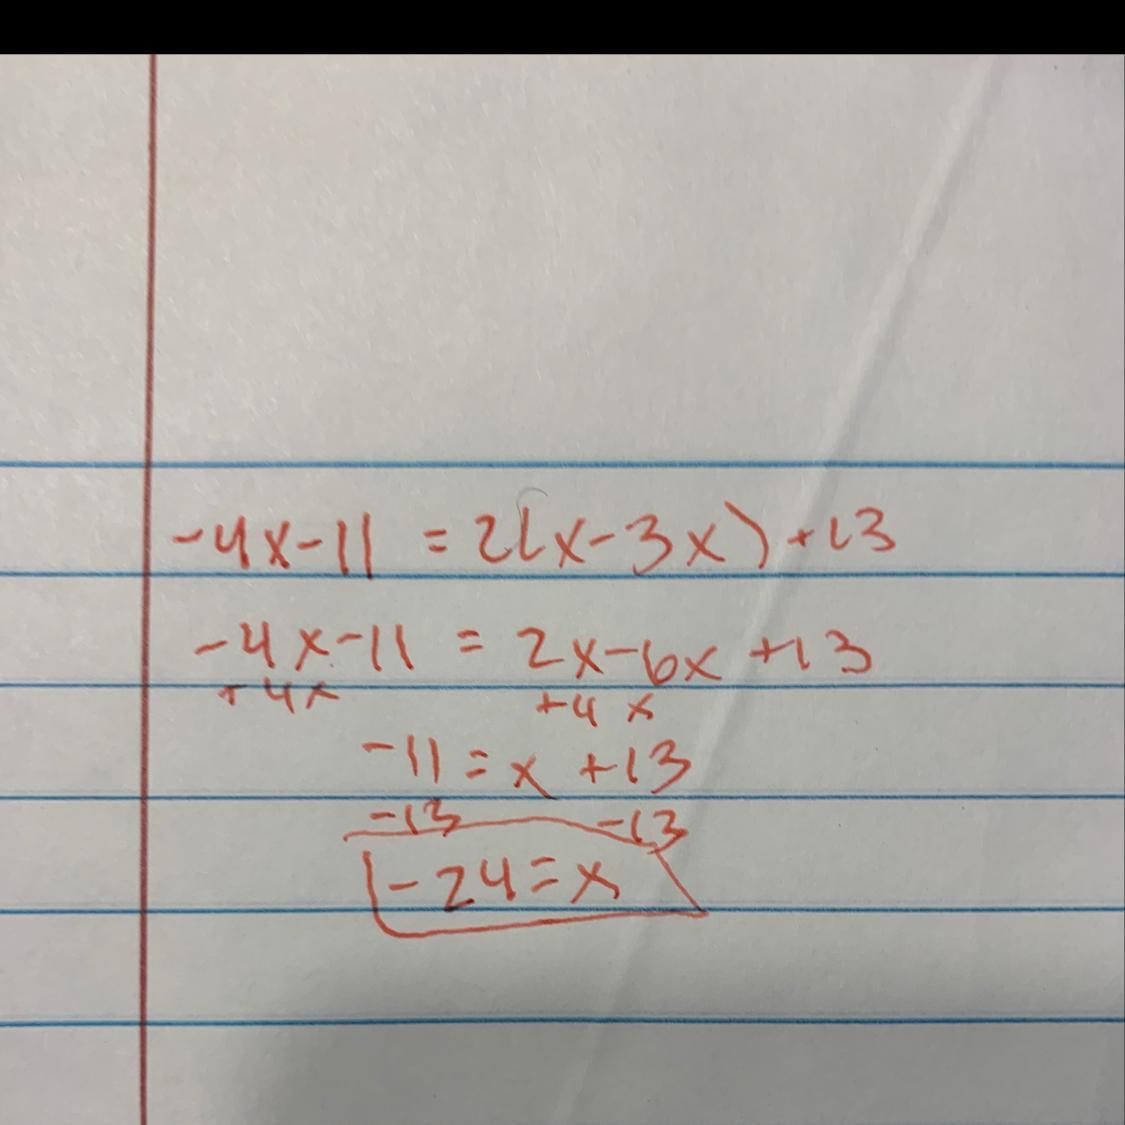 -4x-11 = 2(x-3x)+13
-4x-11 = 2x-6x+13
+4x +4x
-11 = x +13
-13 -13
-24 = x